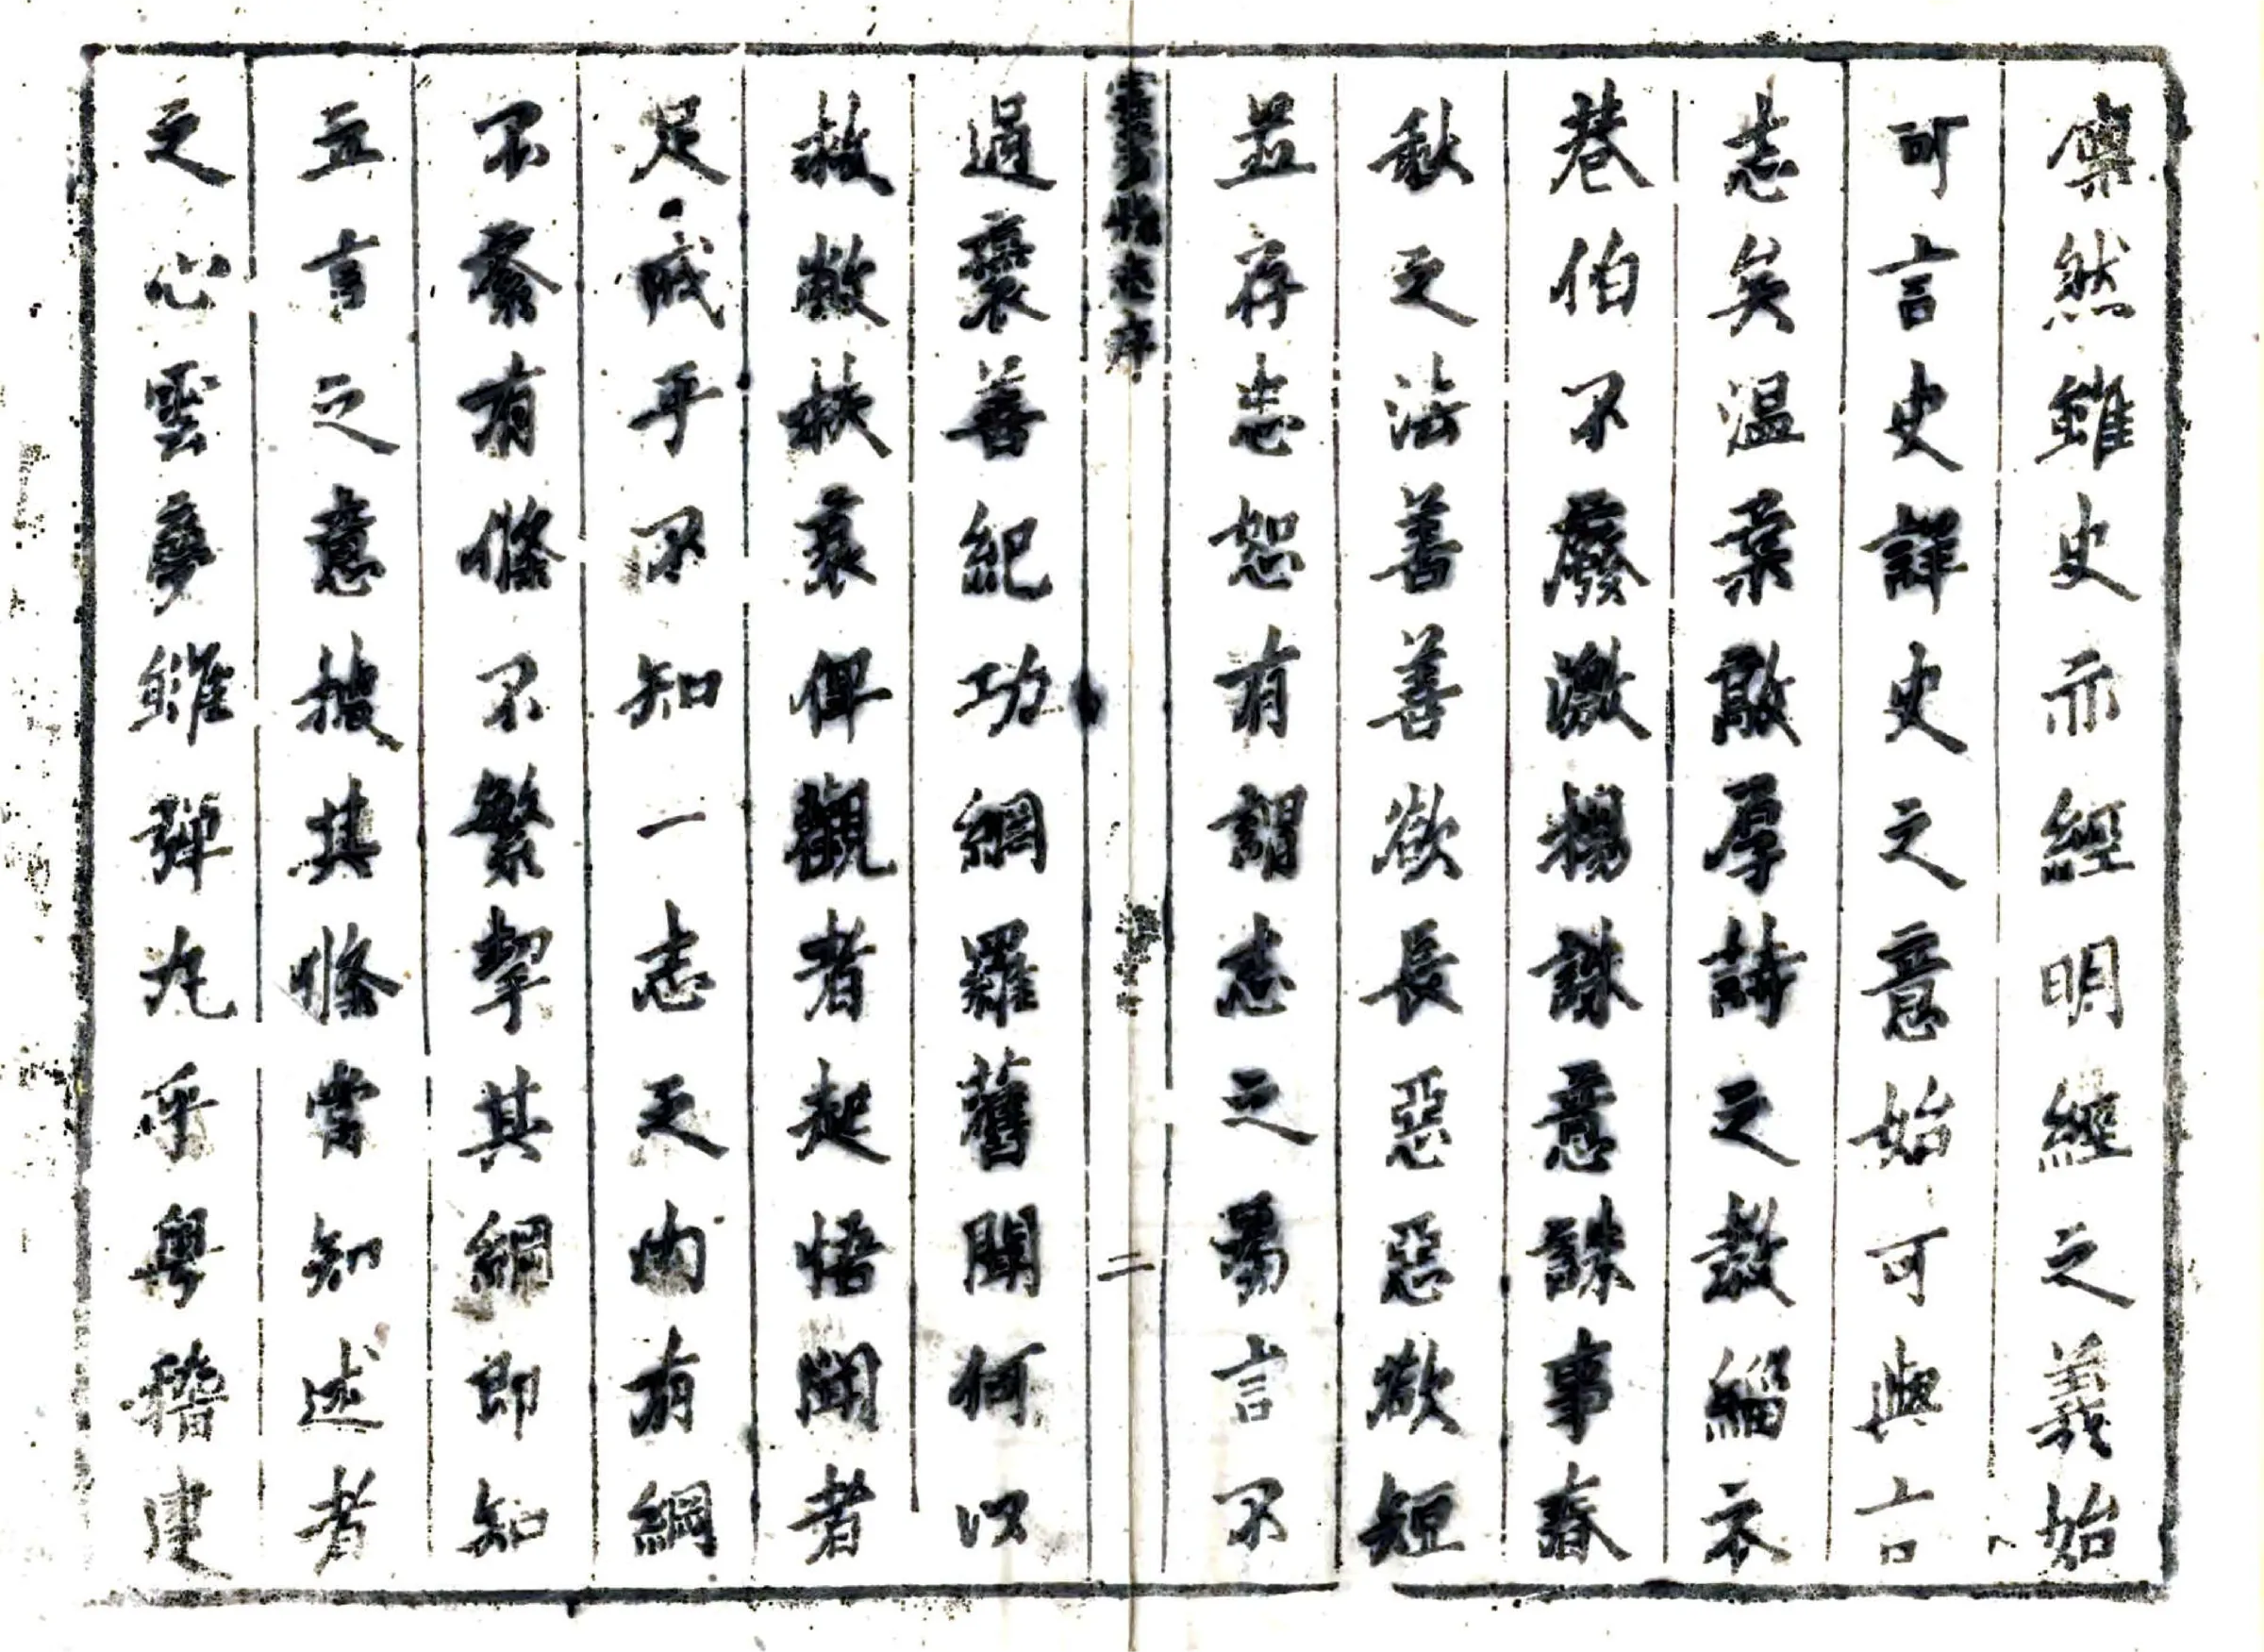 凜然雖史亦經明經之義始
可言史詳史之意始可與言
志矣溫柔敦厚詩之教緇衣
巷伯不廢激揚誅意誅事春
秋之法善善欲長惡惡欲短
並存忠恕有謂志之為言不
過褒善紀功網羅舊聞何以
救敝扶衰俾觀者起悟聞者
足戒乎不知一志之內有綱
不紊有條不繁挈其綱即知
立言之意披其條當知述者
之心雲夢雖彈丸乎粤稽建
二